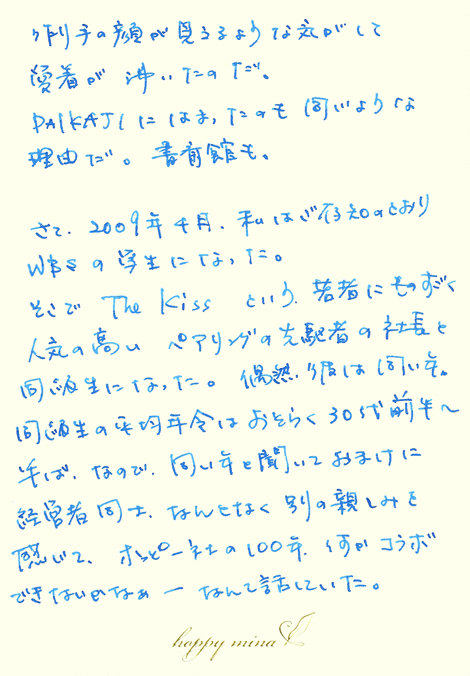 作り手の顔が見えるような気がして
愛着が沸いたのだ。
DAIKAJIにはまったのも同じような
理由だ。書斎館も。
さて、2009年4月、私はご存知のとおり
WBSの学生になった。
そこで The Kiss という、若者にものすごく
人気の高い ペアリングの先駆者の社長と
同級生になった。偶然、彼は同い年。
同級生の平均年令はおそらく30代前半〜
半ば、なので、同い年と聞いておまけに
経営者同士、なんとなく別の親しみを
感じて、ホッピー社の100年、何かコラボ
できないかなぁー なんて話していた。
hoppy mina